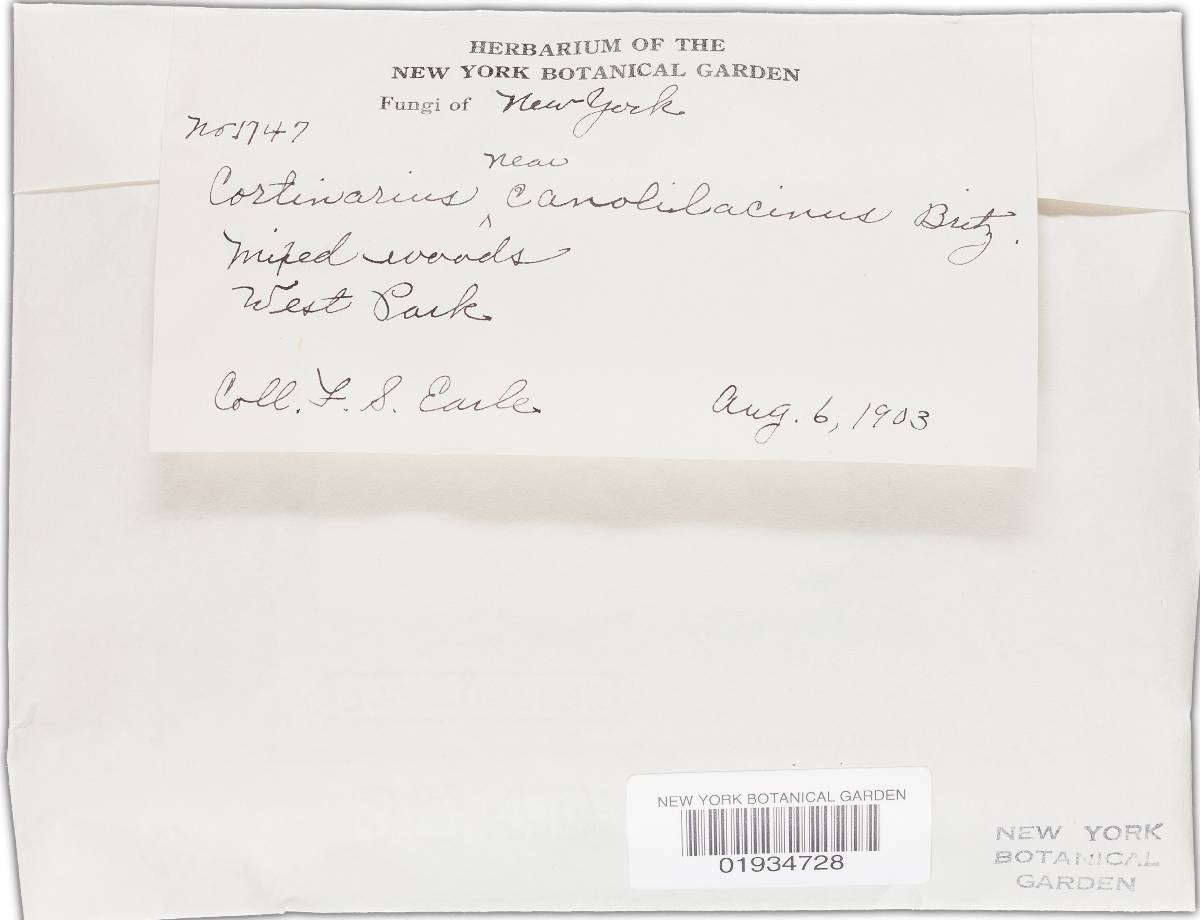 HERBARIUM OF THE
NEW YORK BOTANICAL GARDEN
Fungi of New York
No 1747
near
Cortinarius ^ canolilacinus Britz.
Mixed woods
West Park
Coll. F. S. Earle Aug. 6, 1903
NEW YORK BOTANICAL GARDEN
01934728
NEW YORK
BOTANICAL
GARDEN